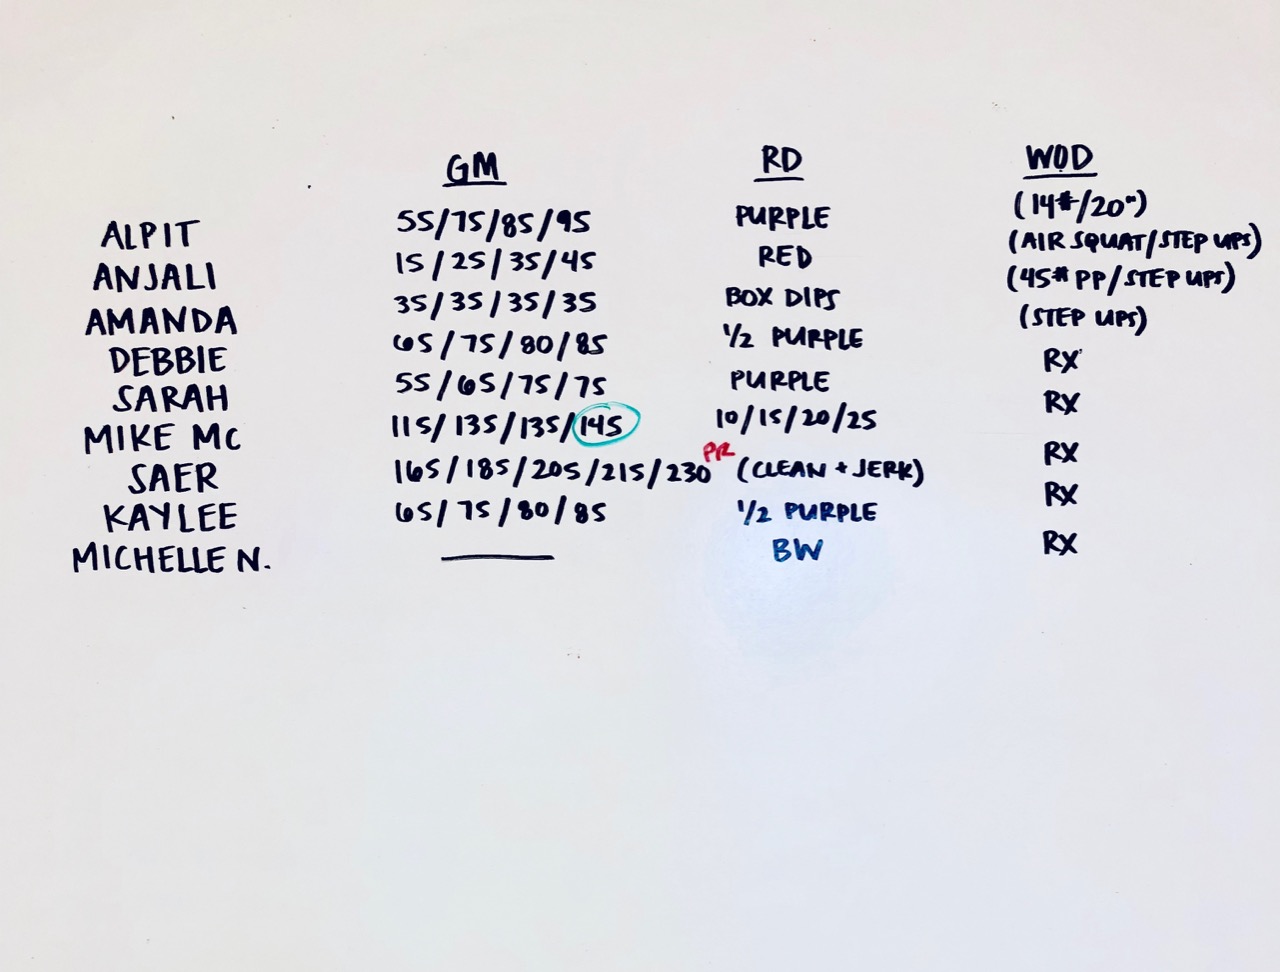 GM RD WOD
ALPIT 55/75/85/95 PURPLE (14#/20")
ANJALI 15/25/35/45 RED (AIR SQUAT/STEP UPS)
AMANDA 35/35/35/35 BOX DIPS (45# PP/STEP UPS)
DEBBIE 65/75/80/85 1/2 PURPLE (STEP UPS)
SARAH 55/65/75/75 PURPLE RX
MIKE MC 115/135/135/145 10/15/20/25 RX
SAER 165/185/205/215/230 PR (CLEAN + JERK) RX
KAYLEE 65/75/80/85 1/2 PURPLE RX
MICHELLE N. BW RX